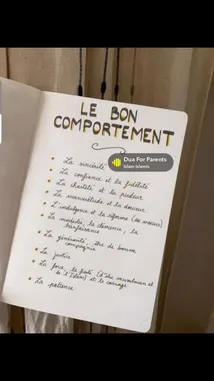 LE BON
COMPORTEMENT
Dua For Parents
Islam-Islamic
La sincérité
La confiance et la fidélité
La chasteté et la pudeur
La mansuétude et la douceur
L'indulgence et la réforme (de
La modestie, la clémence, la
bienfaisance
La générosité, être de bonne
compagnie
La justice
La force, la fierté (d'être musulman et
de l'Islam) et le courage
La patience